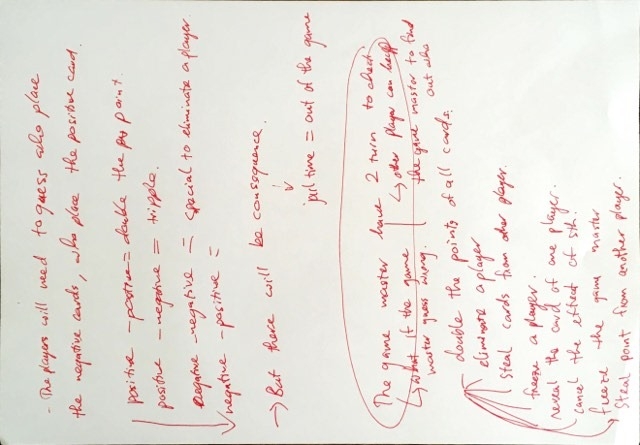 - The players will need to guess who place
the negative cards, who place the positive card.
positive - positive = double the point.
positive - negative = tripple.
Negative - negative = special to eliminate a player.
negative - positive =
→ But there will be consequence.
↓
jail time = out of the game
The game master have 2 turn to check
↳ what if the game master guess wrong.
↳ other player can help
the game master to find
out who
double the points of all cards.
eliminate a player
Steal cards from other player.
freeze a player.
reveal the card of one player.
cancel the effect of sth.
freeze the game master
Steal point from another player.